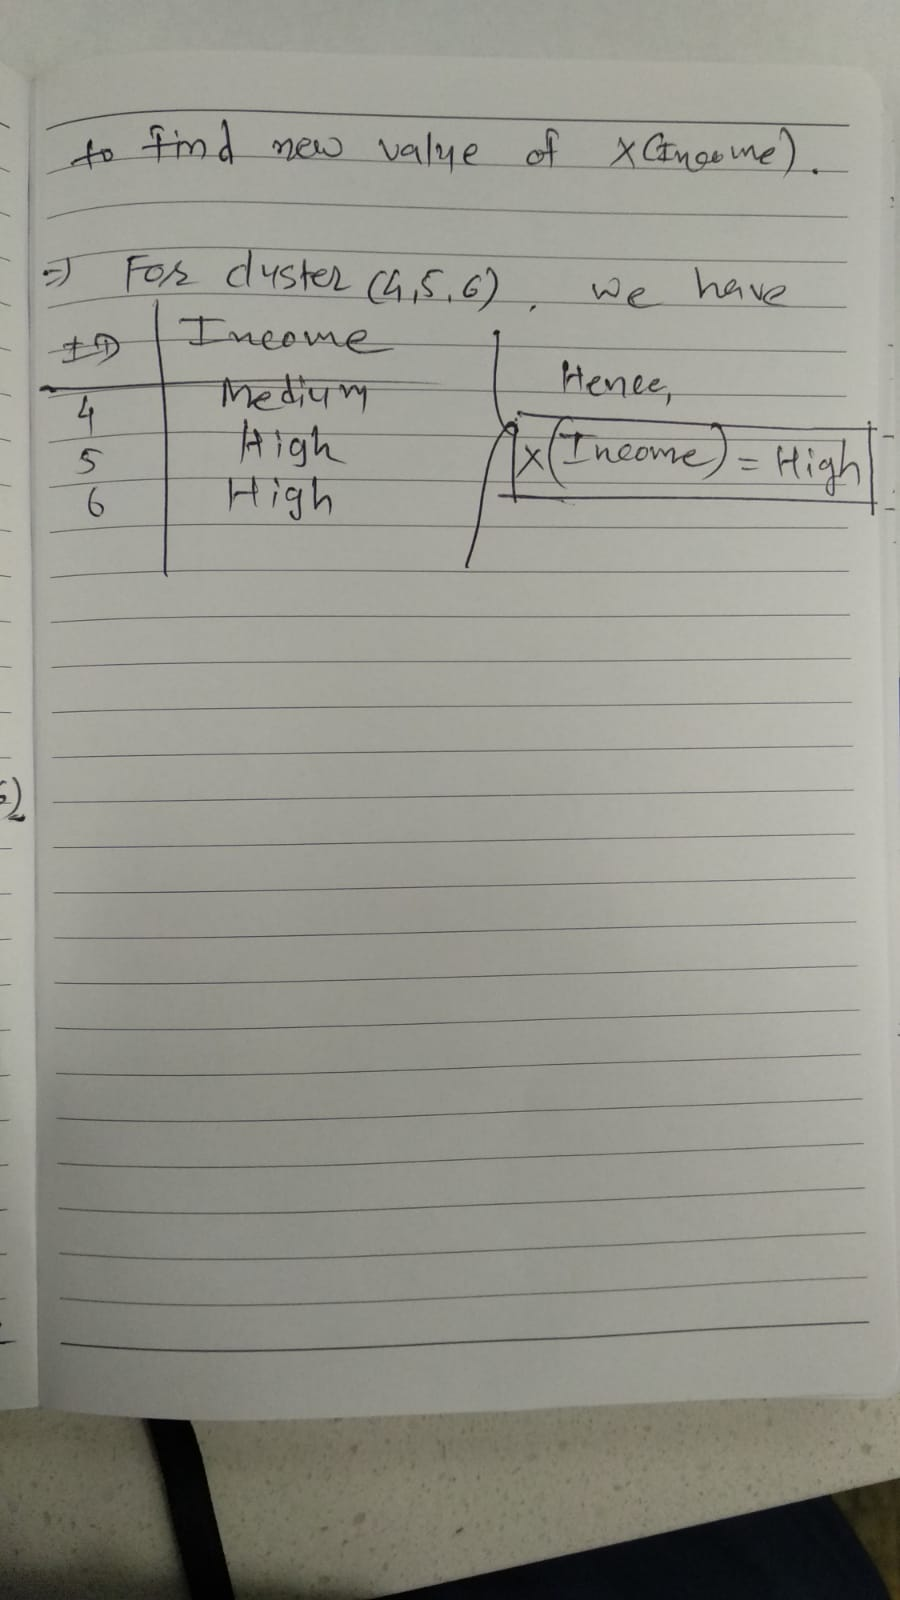 to find new value of X(Income).
=) For cluster (4,5,6), we have
ID Income
4 Medium
5 High
6 High
Hence,
X(Income) = High